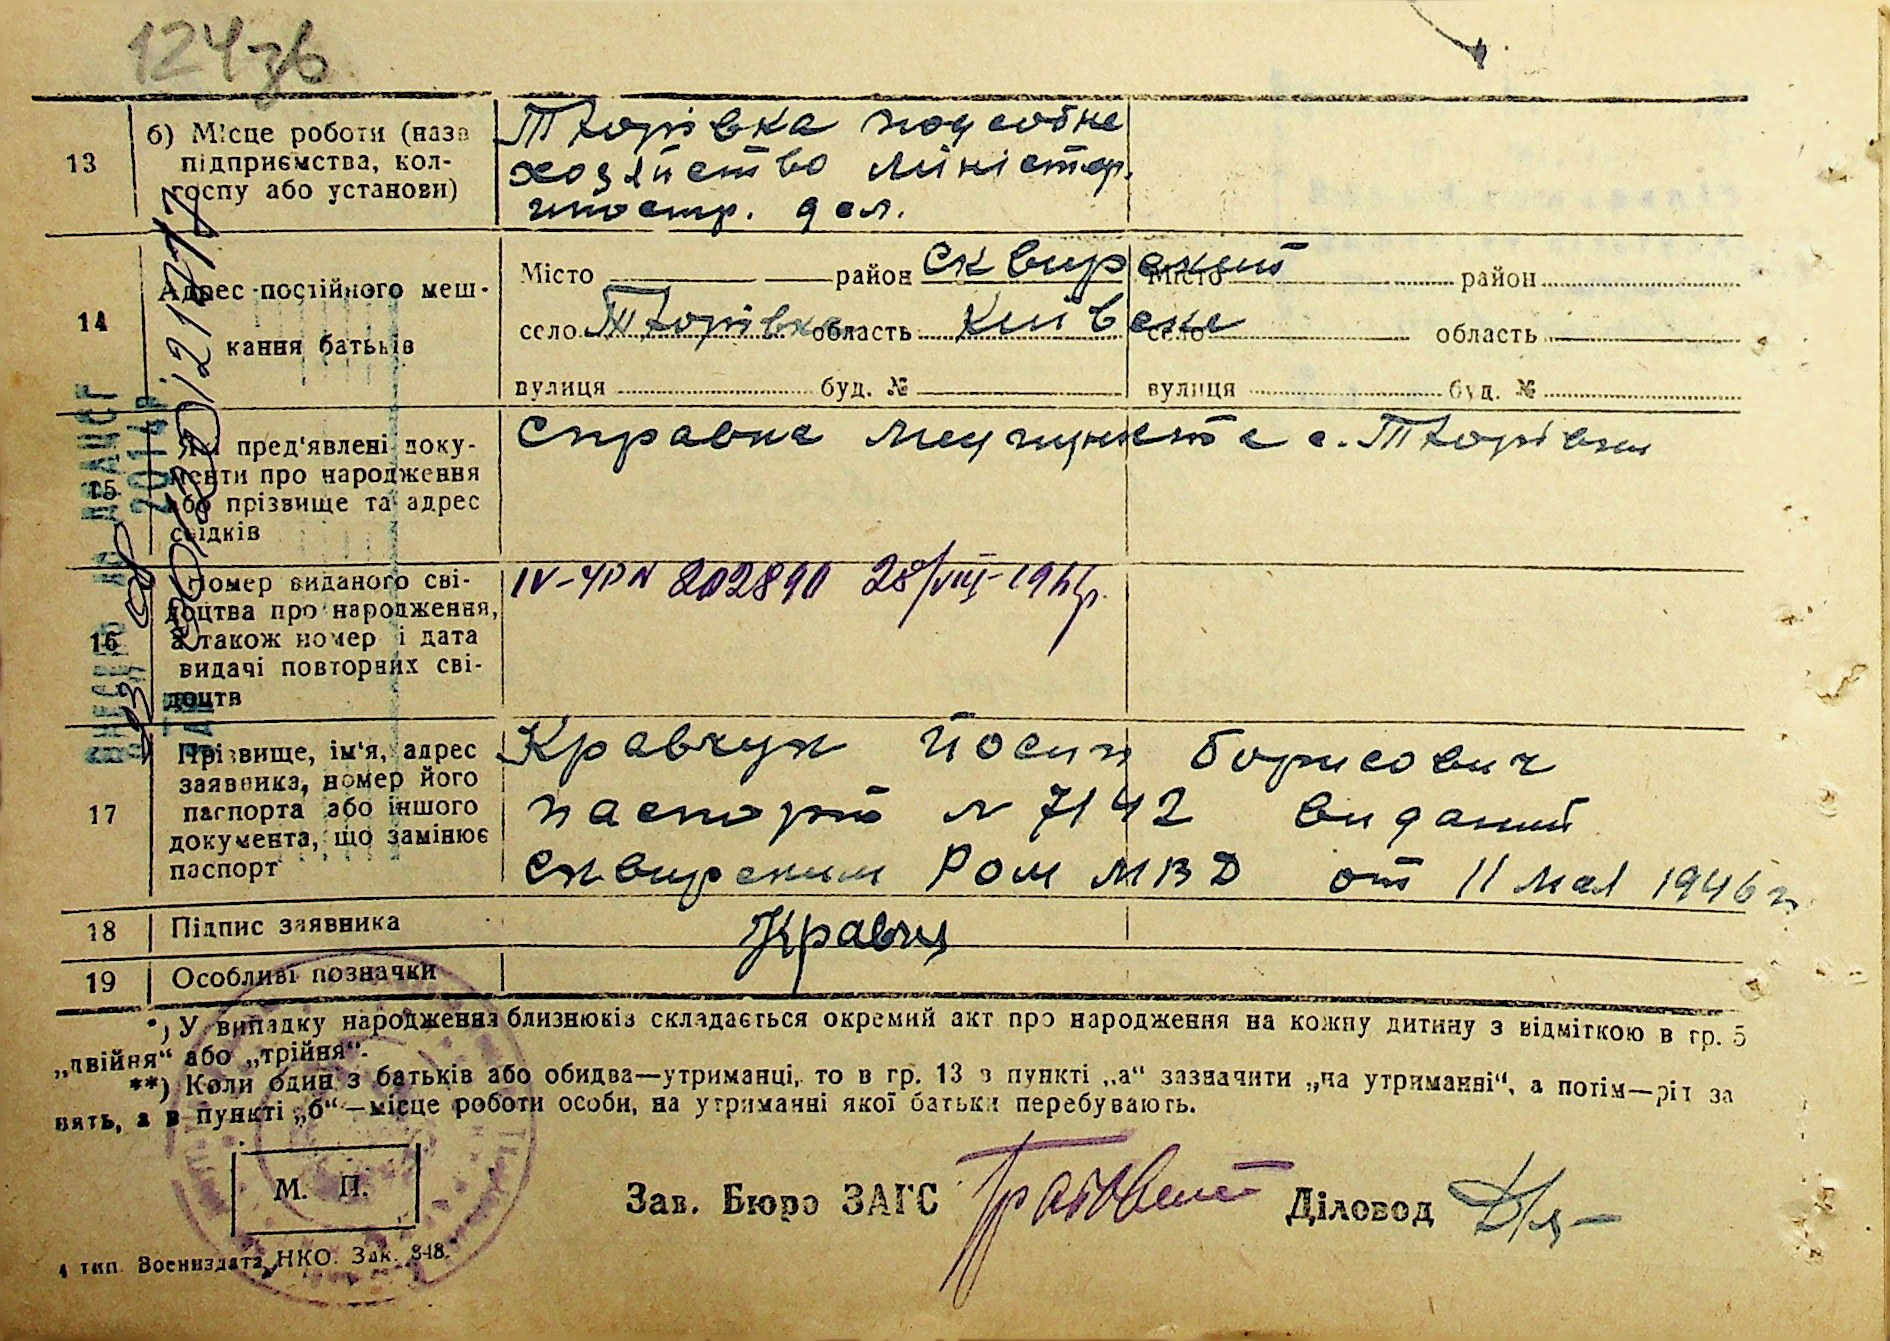 124зв
13
б) Місце роботи (назв
підприємства, кол-
госпу або установи)
Тхорівка подсобне
хозяйство міністер.
иностр. дел.
14
Адрес постійного меш-
кання батьків
Місто район Сквирский
село Тхорівка область Київска
вулиця буд. №
Місто район
село область
вулиця буд. №
15
Які пред'явлені доку-
менти про народження
або прізвище та адрес
свідків
Справка медпункта с. Тхорівки
16
Номер виданого сві-
доцтва про народження,
а також номер і дата
видачі повторних сві-
доцтв
IV-ЧРN 202890 28/VIII-194
17
Прізвище, ім'я, адрес
заявника, номер його
паспорта або іншого
документа, що замінює
паспорт
Кравчук Йосип Борисович
паспорт N 7142 виданий
Сквирским Ром МВД от 11 мая 1946 г.
18
Підпис заявника
Кравчу
19
Особливі позначки
*) У випадку народження близнюків складається окремий акт про народження на кожну дитину з відміткою в гр. 5
„двійня“ або „трійня“.
**) Коли один з батьків або обидва—утриманці, то в гр. 13 в пункті „а“ зазначити „на утриманні“, а потім—рід за
нять, а в пункті „б“—місце роботи особи, на утриманні якої батьки перебувають.
М. П.
Зав. Бюро ЗАГС
Діловод
4 тип. Воениздата НКО. Зак. 348.
ВНЕСЕНО ДО ДРАЦСГ
2014р.